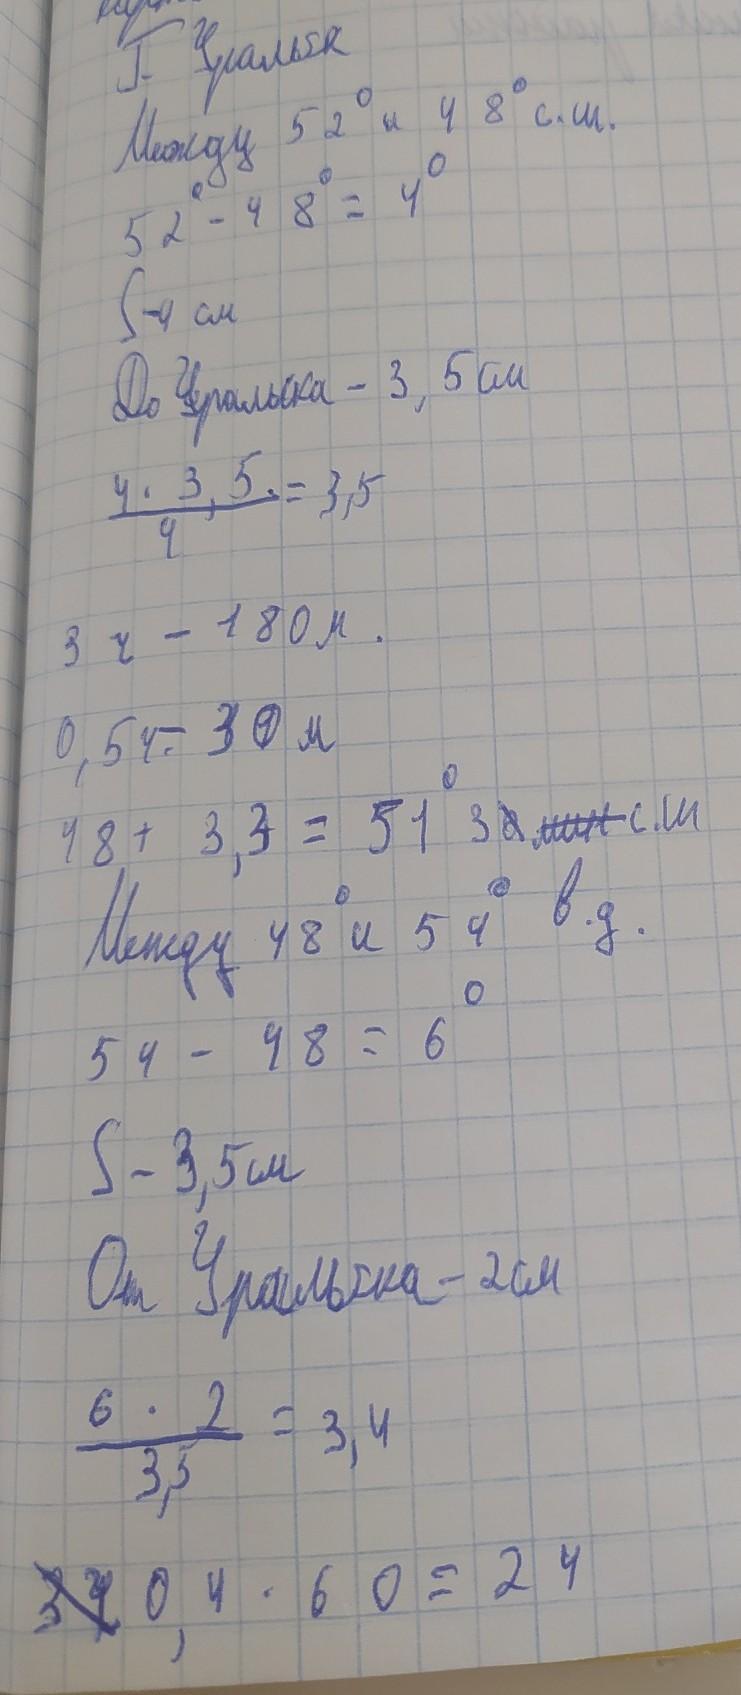 г. Уральск
Между 52° и 48° с.ш.
52° - 48° = 4°
S-4 см
До Уральска - 3,5 см
4 · 3,5 = 3,5
4
3 ч - 180 м.
0,5ч = 30 м
48 + 3,3 = 51° 30 мин с.ш
Между 48° и 54° в.д.
54 - 48 = 6°
S - 3,5 см
От Уральска - 2 см
6 · 2 = 3,4
3,5
0,4 · 60 = 24